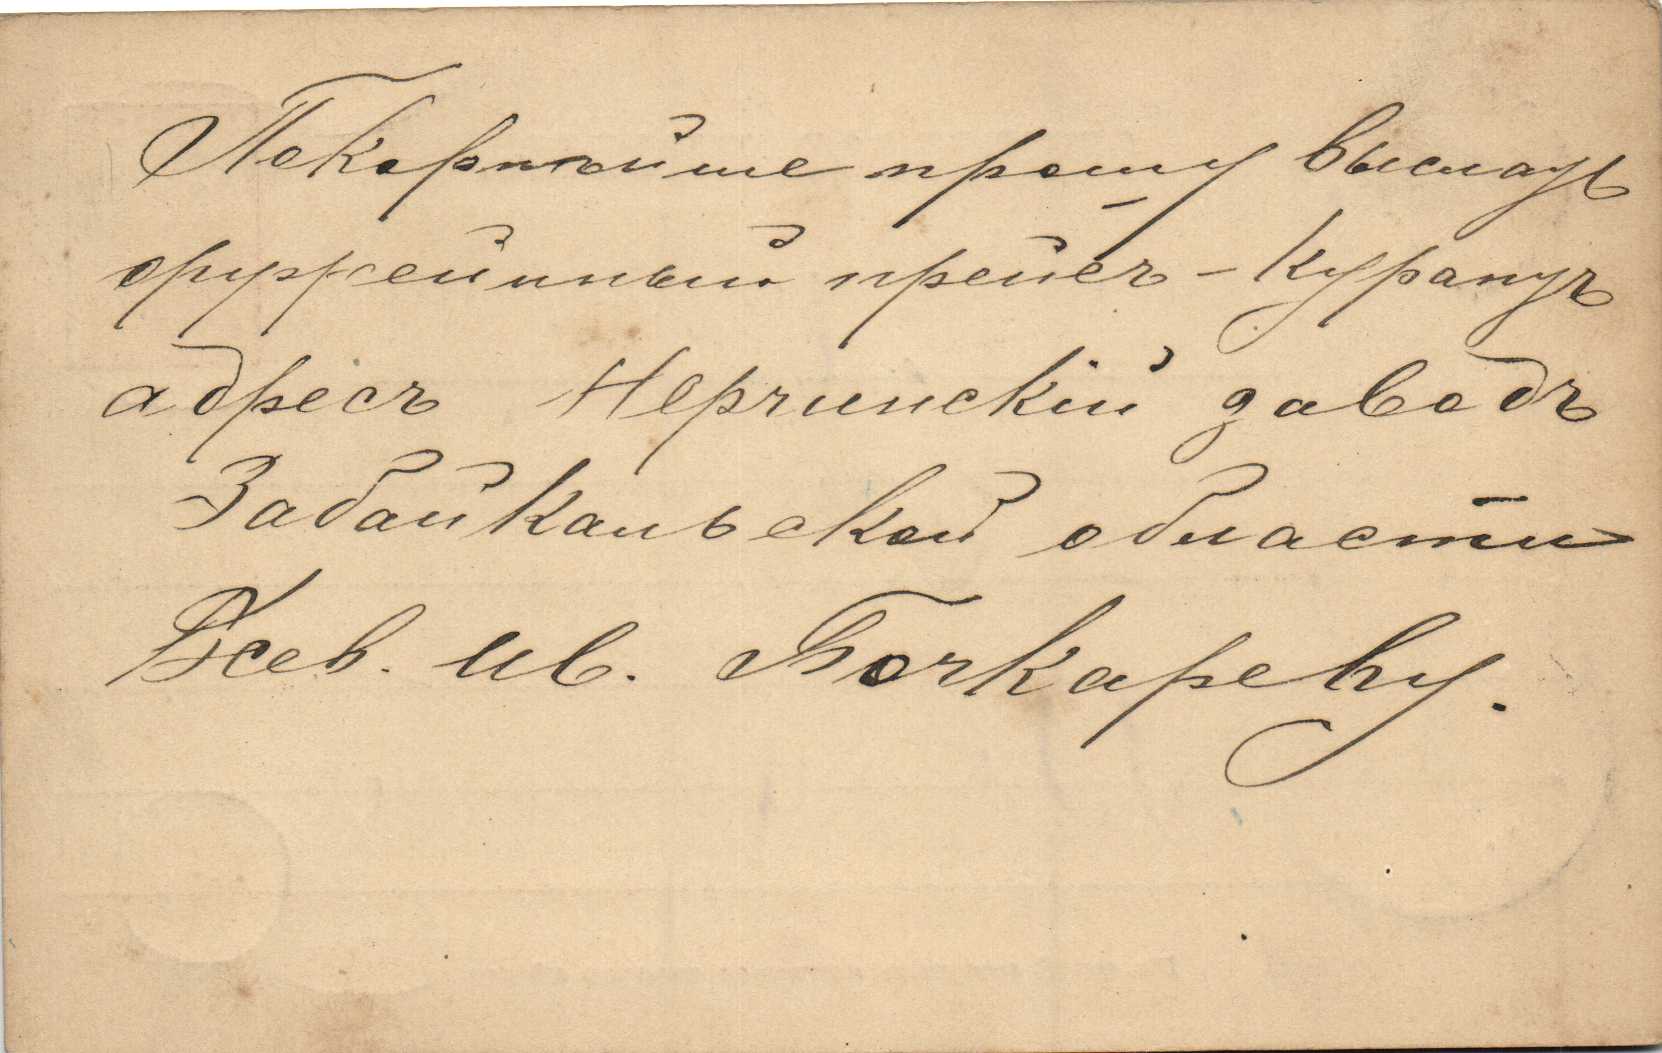 Покорнѣйше прошу выслать
оружейный прейсъ-курантъ
адресъ Нерчинскій заводъ
Забайкальской области
Ив. Бочкареву.